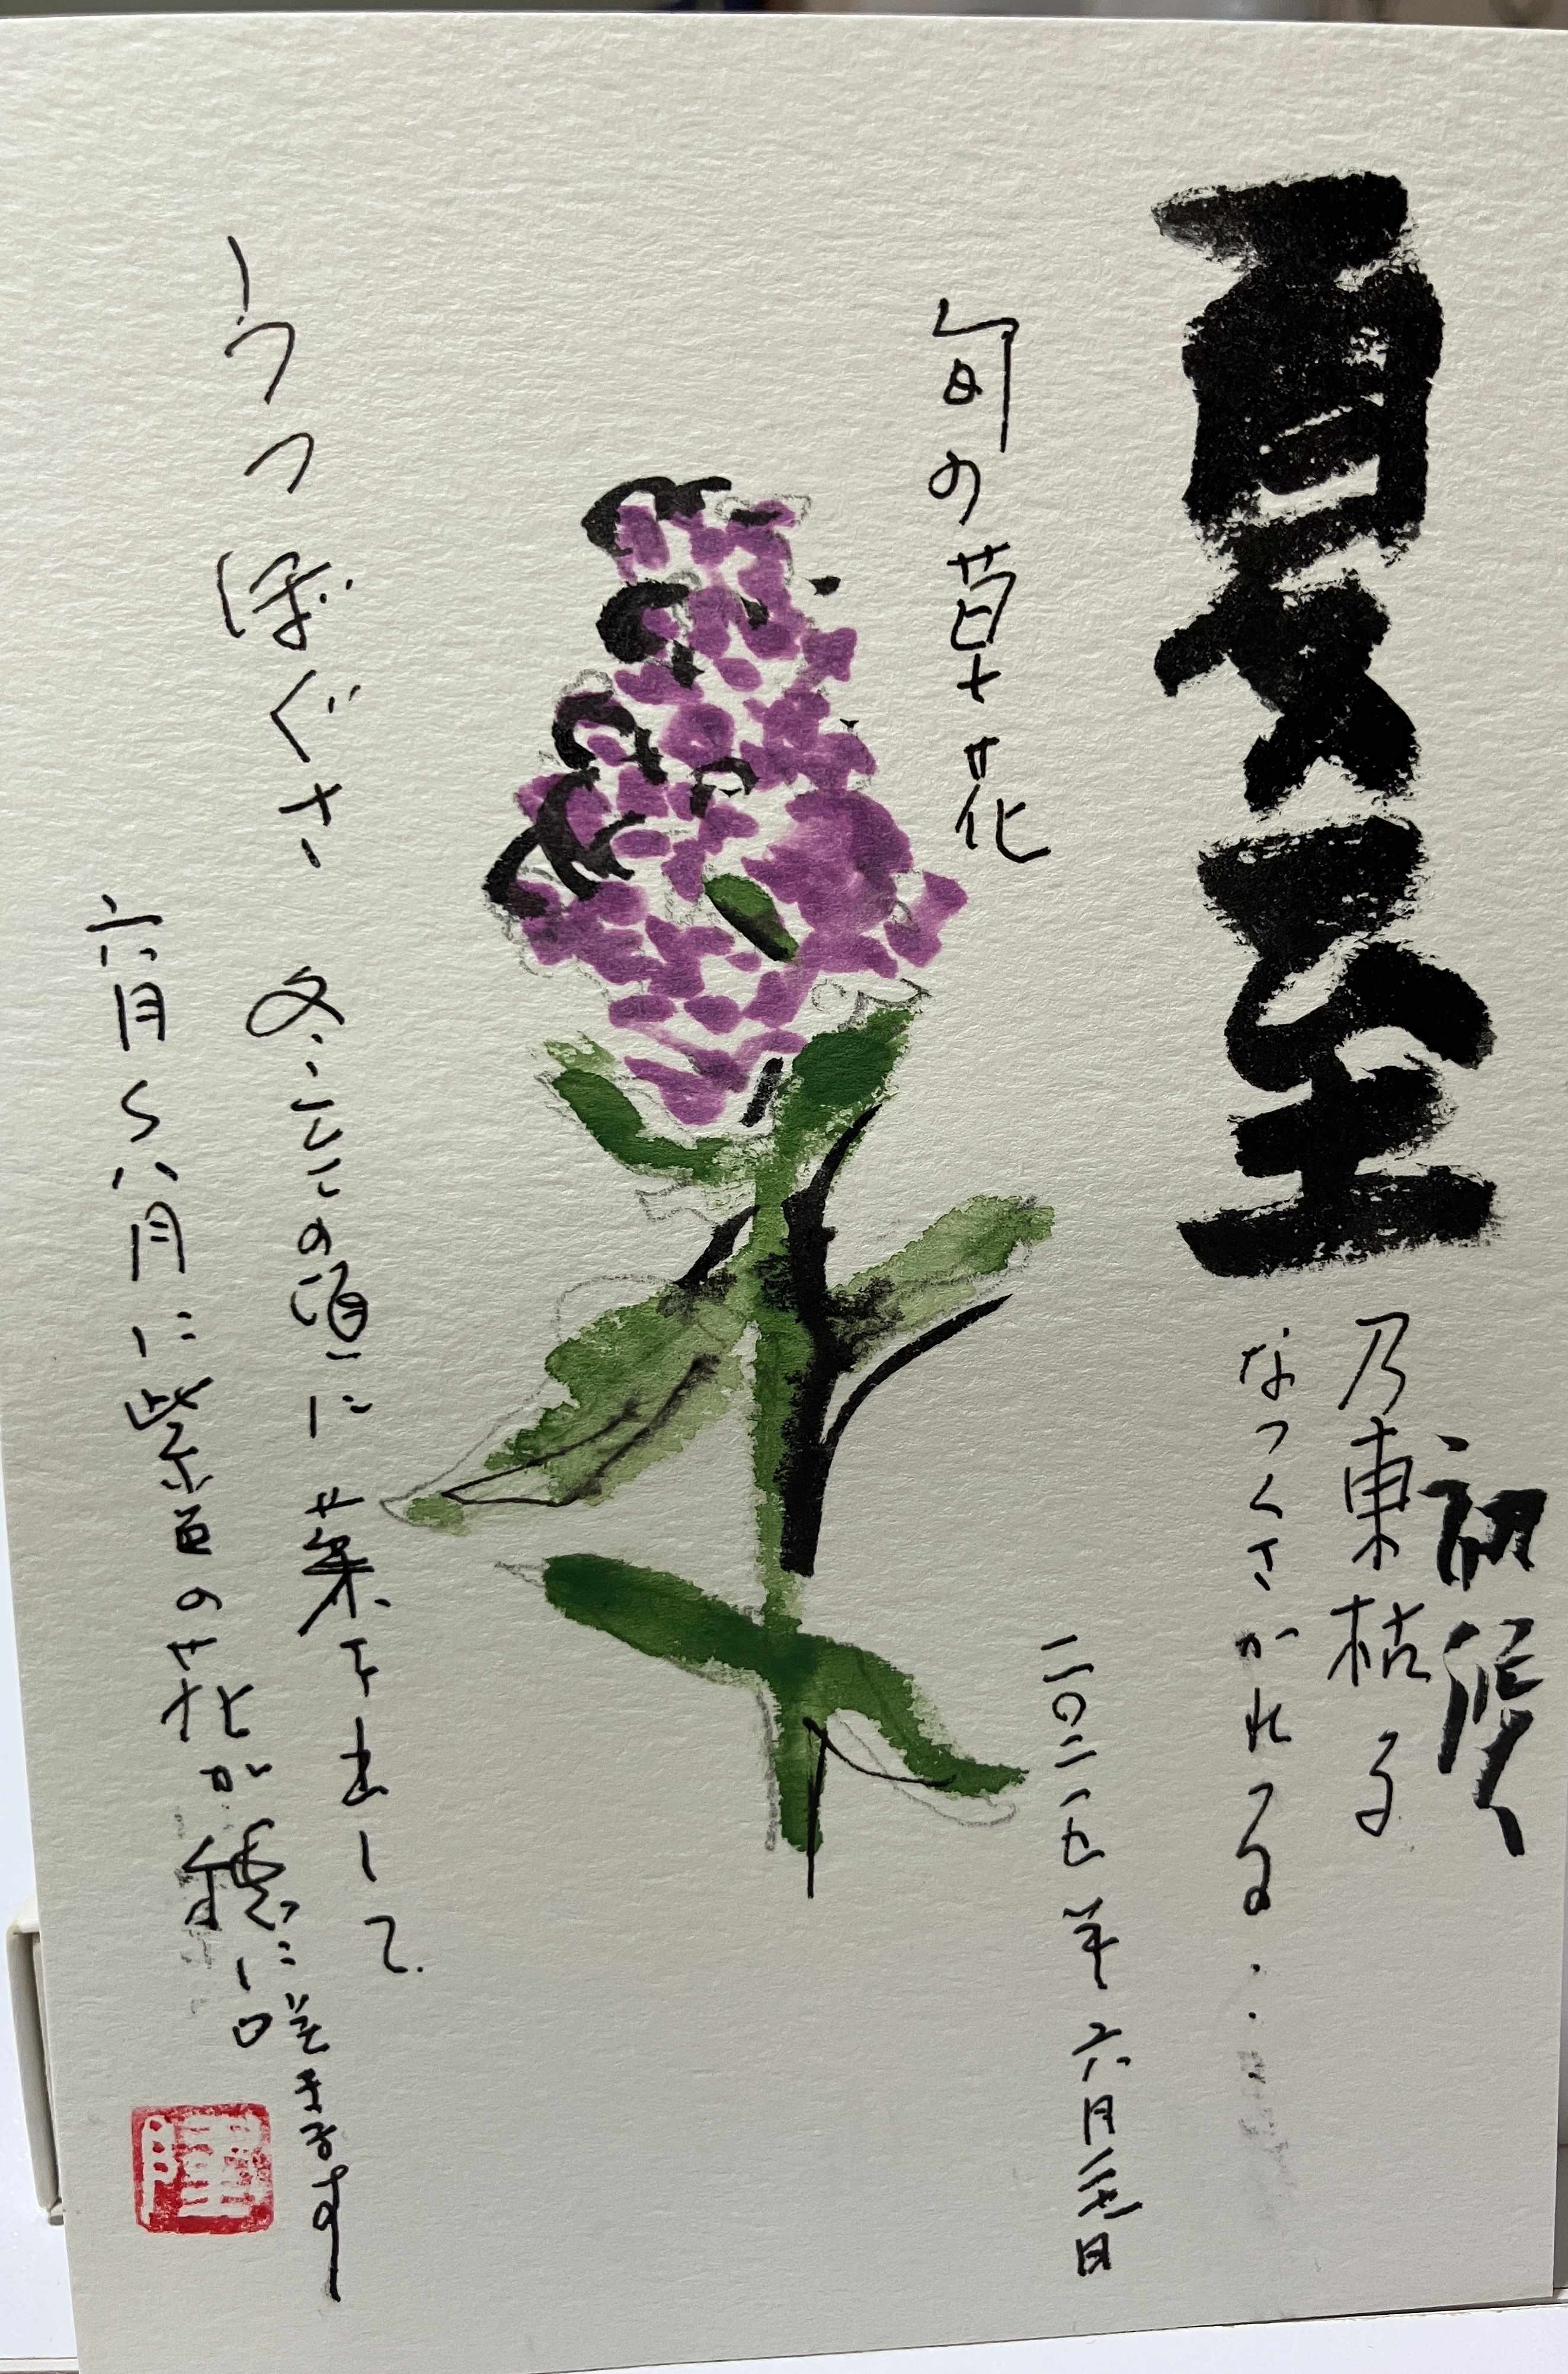 夏至
初候
乃東枯る
なつくさかれる・・
二〇二五年六月
旬の草花
うつぼぐさ 冬至の頃に葉を出して
六月〜八月に紫色の花が穂に咲きます